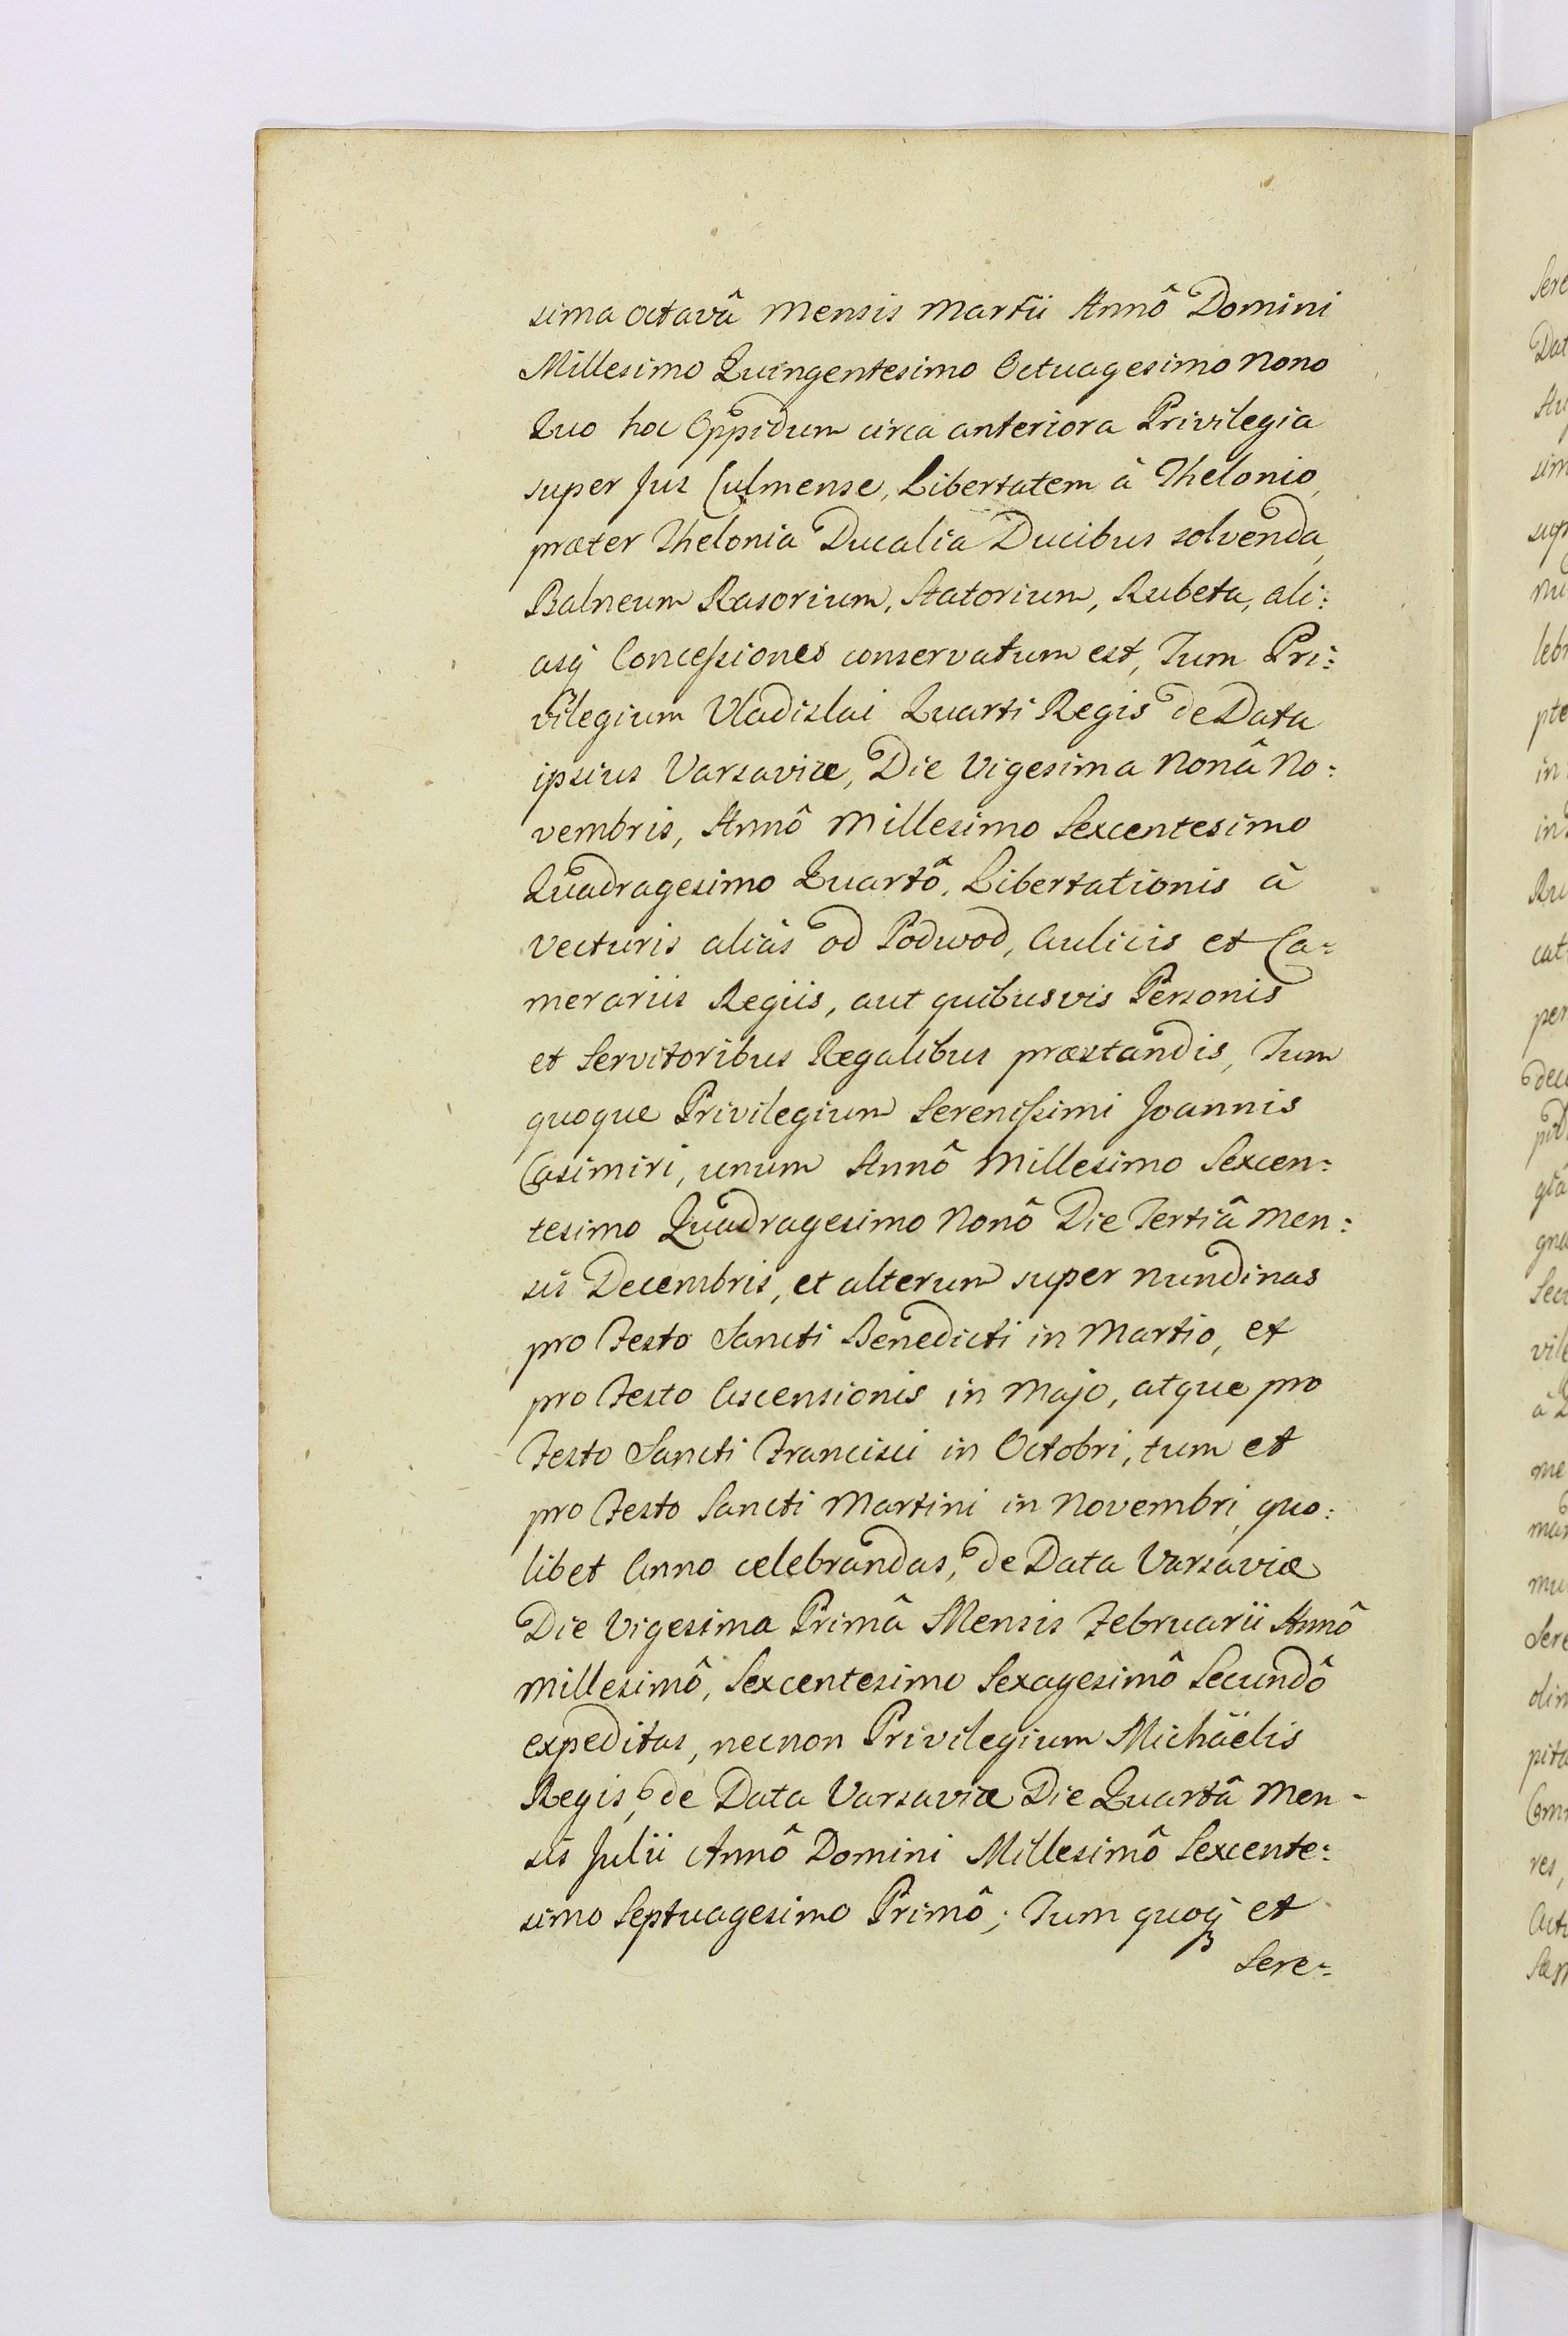 sima octavâ Mensis Martii Annô Domini
Millesimo Quingentesimo Octuagesimo Nono
Quo hoc Oppidum circa anteriora Privilegia
super Jus Culmense, Libertatem à Thelonio,
præter Thelonia Ducalia Ducibus solvenda,
Balneum Rasorium, Statorium, Rubeta, ali:
asq́ Conceſsiones conservatum est, Tum Pri:
vilegium Vladislai Quarti Regis de Data
ipsius Varsaviæ, Die Vigesima Nonâ No:
vembris, Annô Millesimo Sexcentesimo
Quadragesimo Quartô, Libertationis à
Vecturis aliàs od Podwod, Aulicis et Ca:
merariis Regiis, aut quibusvis Personis
et Servitoribus Regalibus præstandis, Tum
quoque Privilegium Sereniſsimi Joannis
Casimiri, unum Annô Millesimo Sexcen:
tesimo Quadragesimo Nonô Die Tertiâ Men:
sis Decembris, et alterum super Nundinas
pro Festo Sancti Benedicti in Martio, et
pro Festo Ascensionis in Majo, atque pro
Festo Sancti Francisci in Octobri, tum et
pro Festo Sancti Martini in Novembri, quo:
libet Anno celebrandas, de Data Varsaviæ
Die Vigesima Primâ Mensis Februarii Annô
Millesimô, Sexcentesimo Sexagesimô Secundô
expeditas, necnon Privilegium Michäelis
Regis, de Data Varsaviæ Die Quartâ Men-
sis Julii Annô Domini Millesimô Sexcente:
simo Septuagesimo Primô; Tum quoq́ et
Sere: